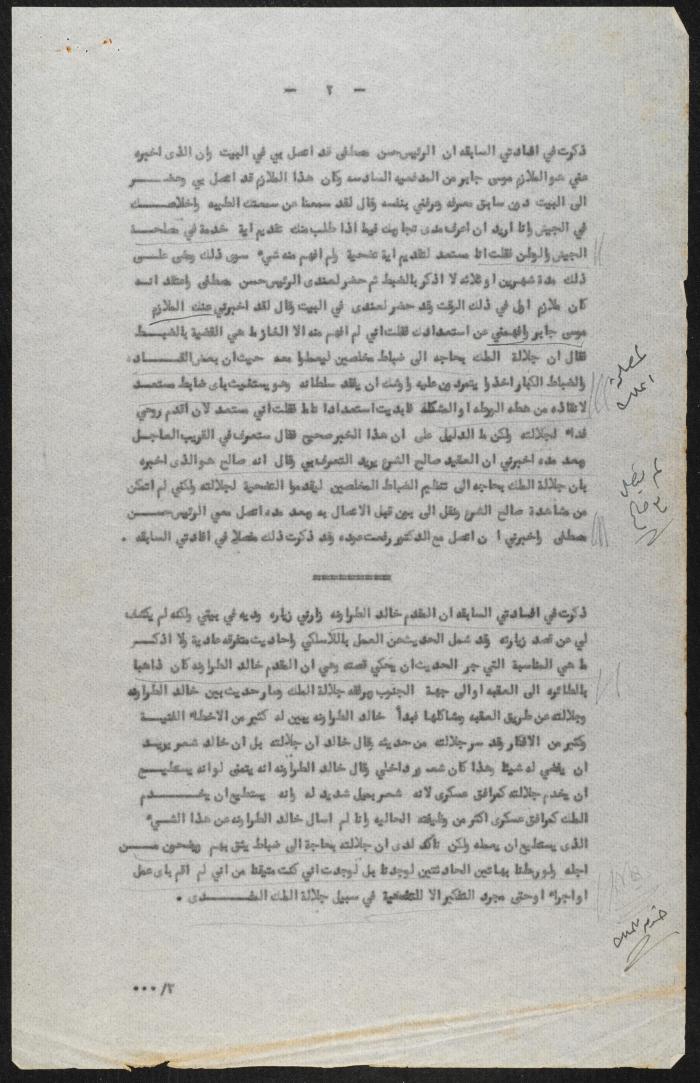 - ٢ -
ذكرت في افادتي السابقه ان الرئيس حسن مصطفى قد اتصل بي في البيت وان الذى اخبره
عني هو الملازم موسى جابر من المدفعيه السادسه وكان هذا الملازم قد اتصل بي وحضر
الى البيت دون سابق معرفه وعرفني بنفسه وقال لقد سمعنا عن سمعتك الطيبه واخلاصك
في الجيش وانا اريد ان اعرف مدى تجاوبك فيما اذا طلب منك تقديم اية خدمة في مصلحة
الجيش والوطن فقلت انا مستعد لتقديم اية تضحية ولم افهم منه شيء سوى ذلك ومضى على
ذلك مدة شهرين او ثلاثه لا اذكر بالضبط ثم حضر لعندى الرئيس حسن مصطفى واعتقد انه
كان ملازم اول في ذلك الوقت وقد حضر لعندى في البيت وقال لقد اخبرني عنك الملازم
موسى جابر وافهمني عن استعدادك فقلت اني لم افهم منه الا الغاز ما هي القضية بالضبط
فقال ان جلالة الملك بحاجه الى ضباط مخلصين ليعملوا معه حيث ان بعض القاده
والضباط الكبار اخذوا يتمردون عليه واوشك ان يفقد سلطانه وهو يستغيث باى ضابط مستعد
لانقاذه من هذه الورطه او المشكله فابديت استعدادا تاما فقلت اني مستعد لان اقدم روحي
فداء لجلالته ولكن ما الدليل على ان هذا الخبر صحيح فقال ستعرف في القريب العاجل
وبعد مده اخبرني ان العقيد صالح الشرع يريد التعرف بي وقال انه صالح هو الذى اخبره
بان جلالة الملك بحاجه الى تنظيم الضباط المخلصين ليقدموا التضحية لجلالته ولكني لم اتمكن
من مشاهدة صالح الشرع ونقل الى بين قبل الاتصال به وبعد مده اتصل معي الرئيس حسن
مصطفى واخبرني ان اتصل مع الدكتور رفعت عوده وقد ذكرت ذلك مفصلا في افادتي السابقه .
============
ذكرت في افادتي السابقه ان المقدم خالد الطراونه زارني زياره وديه في بيتي ولكنه لم يكشف
لي عن قصد زيارته وقد شمل الحديث عن العمل باللاسلكي واحاديث متفرقه عادية ولا اذكر
ما هي المناسبة التي جر الحديث ان يحكي قصته وهي ان المقدم خالد الطراونه كان ذاهبا
بالطائره الى العقبه او الى جهة الجنوب وبرفقه جلالة الملك وصار حديث بين خالد الطراونه
وجلالته عن طريق العقبه ومشاكلها فبدأ خالد الطراونه يبين له كثير من الاخطاء الفنية
وكثير من الافكار وقد سر جلالته من حديثه وقال خالد ان جلالته بل ان خالد شعر يريد
ان يفضي له شيئا وهذا كان شعور داخلي وقال خالد الطراونه انه يتمنى لو انه يستطيع
ان يخدم جلالته كمرافق عسكرى لانه شعر بميل شديد له وانه يستطيع ان يخدم
الملك كمرافق عسكرى اكثر من وظيفته الحاليه وانا لم اسال خالد الطراونه عن هذا الشيء
الذى يستطيع ان يعمله ولكن تأكد لدى ان جلالته بحاجة الى ضباط يثق بهم ويضحون من
اجله ولو ربطنا بهاتين الحادثتين لوجدنا بل لوجدت اني كنت متيقنا من اني لم اقم باى عمل
او اجراء او حتى مجرد التفكير الا للتضحية في سبيل جلالة الملك المفدى .
٠٠٠/٣